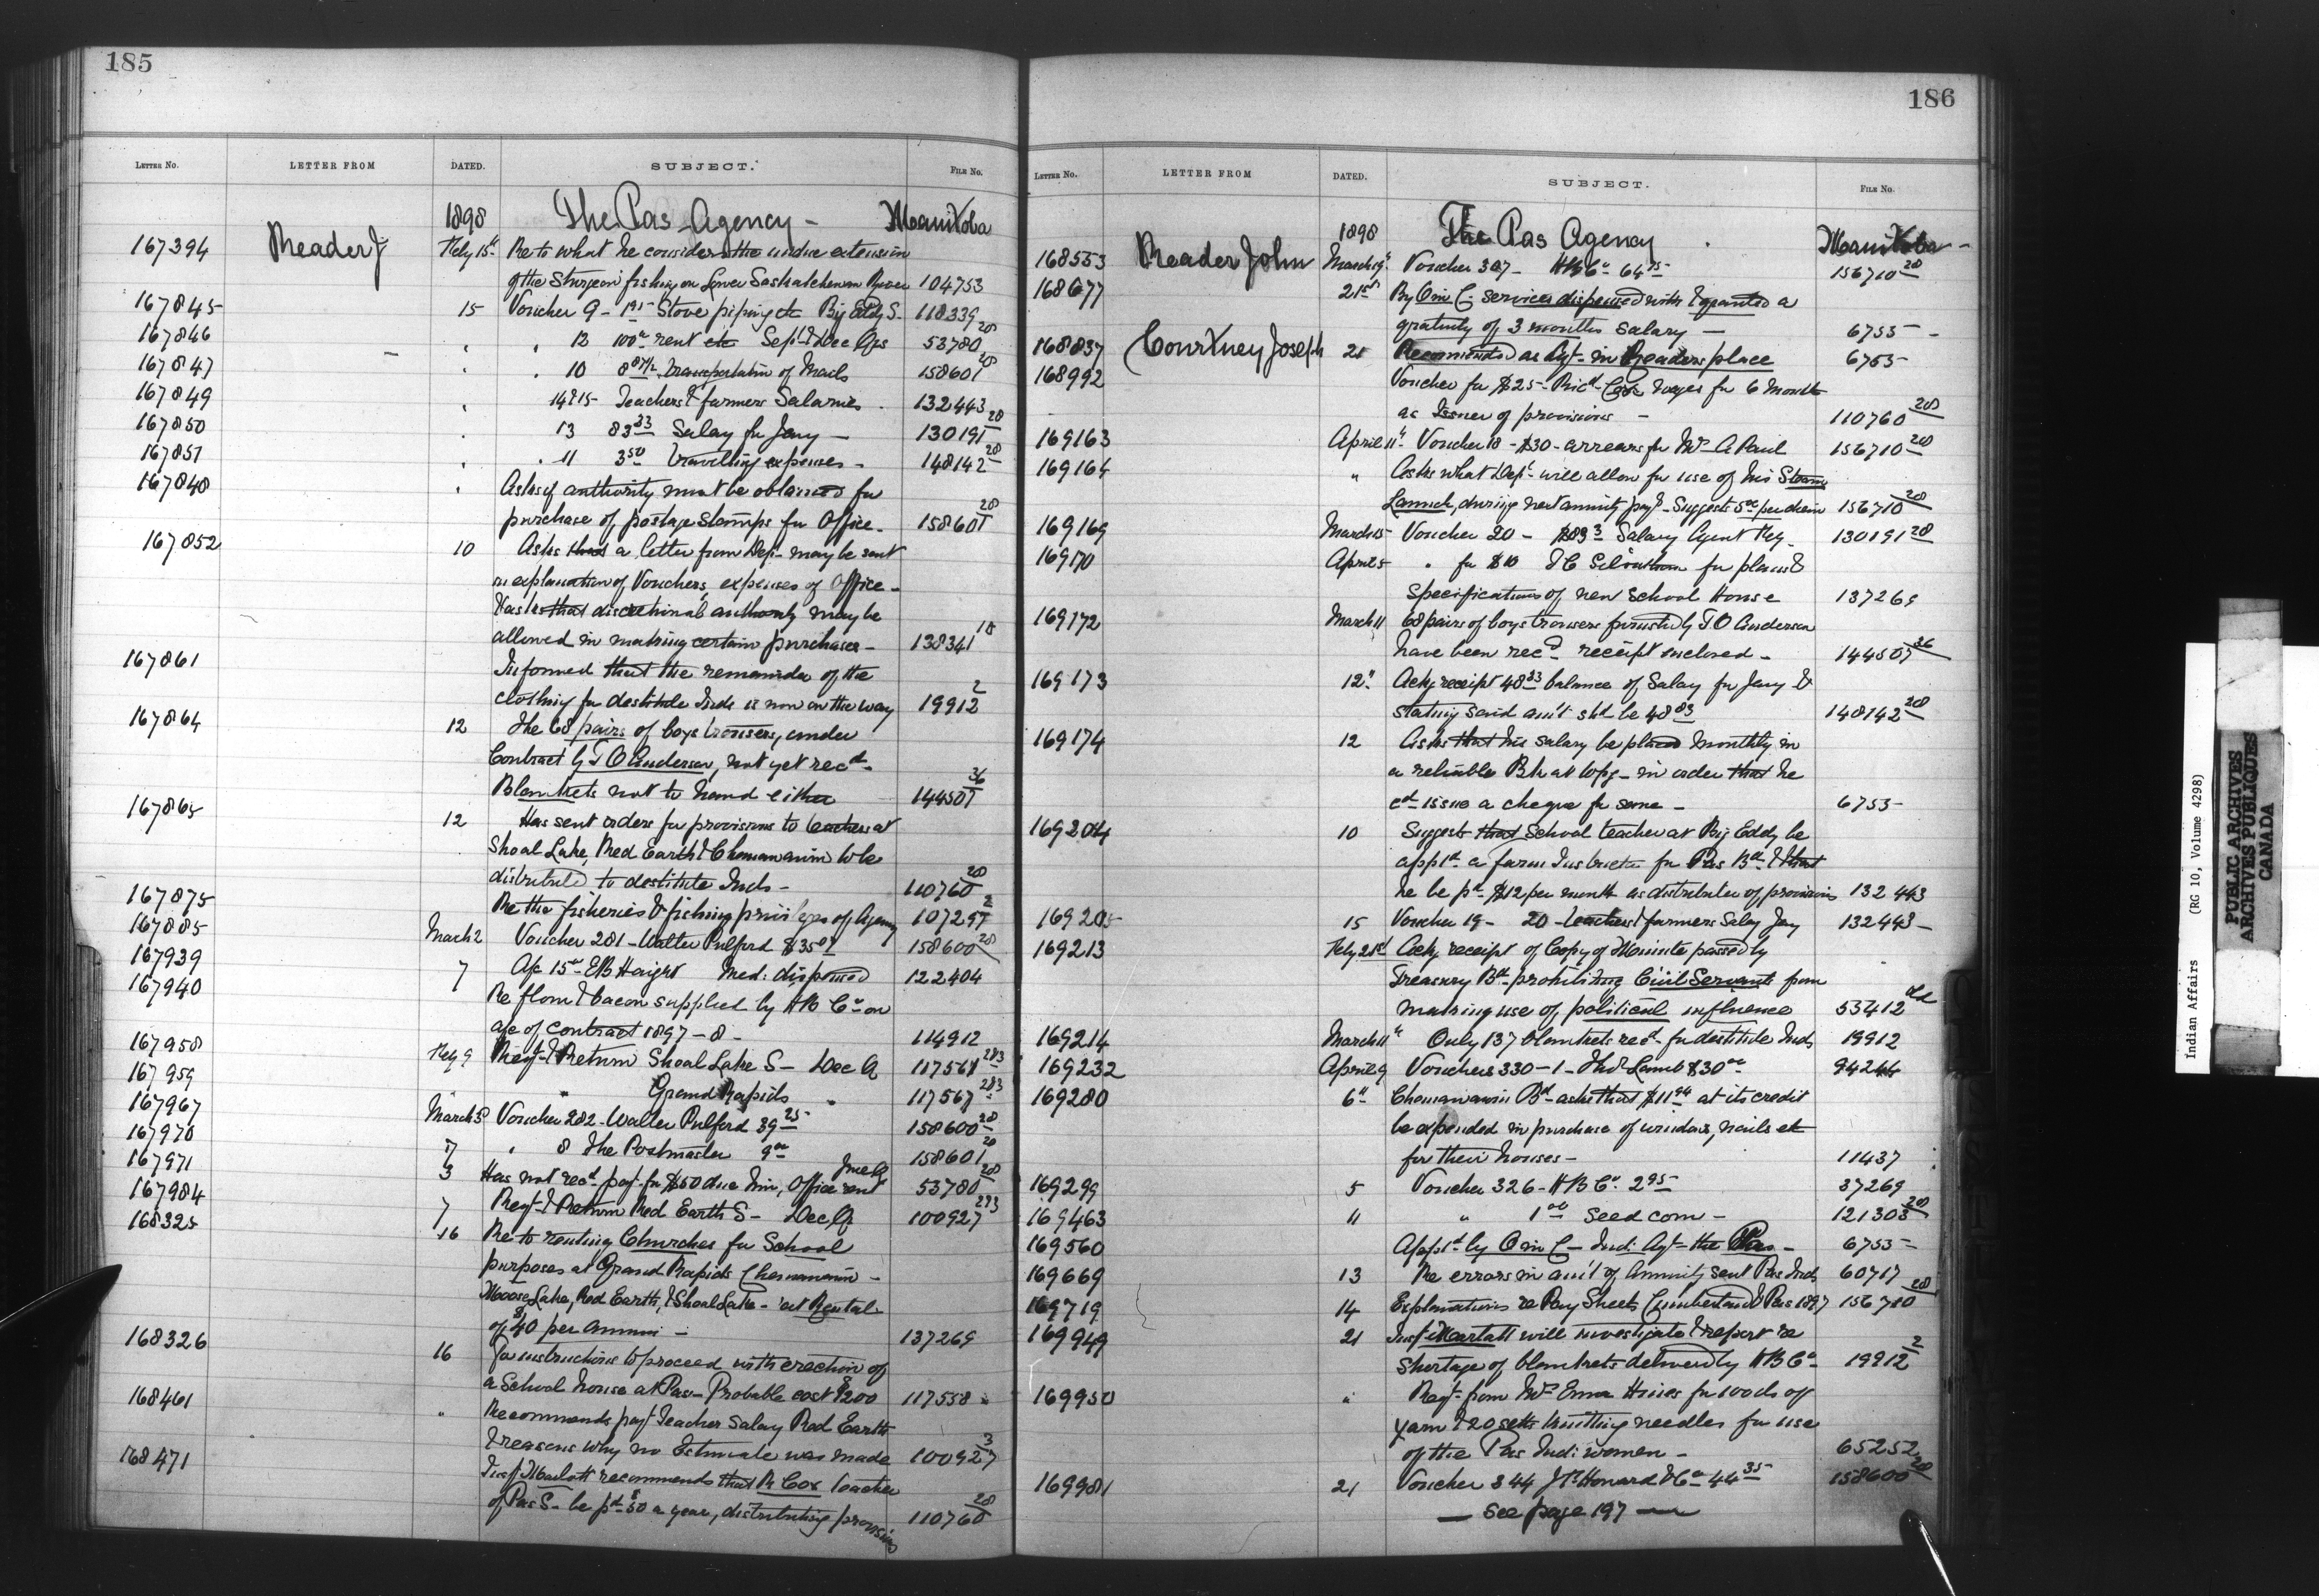 185
LETTER NO. LETTER FROM DATED. SUBJECT. FILE NO.
1898 The Pas Agency - Manitoba
167394 Reader J Feby 15th Re to what he considers the undue extension
of the Sturgeon fishing on Lower Saskatchewan River 104753
167845 15 Voucher 9 - 1 95 Stove piping etc Big Eddy S. 118339
167846 " " 12 100 00 rent etc Sept & Dec Qrs 53780 28
167847 " " 10 8 87½ Transportation of Mails 158601 28
167849 " 14 & 15 Teachers & farmers Salaries 132443
167850 " 13 83 33 Salary for Jany - 130191 28
167851 " " 11 3 50 Travelling expenses - 148142 28
167848 " Asks if authority must be obtained for
purchase of postage stamps for Office - 158601 28
167852 10 Asks that a letter from Dept may be sent
in explanation of Vouchers, expenses of Office -
& asks that discretional authority may be
allowed in making certain purchases - 138341 18
167861 Informed that the remainder of the
clothing for destitute Inds is now on the way 19912 2
167864 12 The 68 pairs of boys trousers, under
Contract by T O Anderson, not yet recd -
Blankets not to hand either 144507 36
167865 12 Has sent orders for provisions to teachers at
Shoal Lake, Red Earth & Chemawawin to be
distributed to destitute Inds - 110760 28
167875 Re the fisheries & fishing privileges of Agency 107297 2
167885 March 2 Voucher 281 - Walter Pulford $35 07 158600 28
167939 7 A/c 15 00 E B Haight Med: dispensed 122404
167940 Re flour & bacon supplied by H B Co on
a/c of contract 1897-8 - 114912
167958 Feby 9 Regt & Return Shoal Lake S - Dec Q 117568 283
167959 " " Grand Rapids " 117567 283
167967 March 3 Voucher 282 - Walter Pulford 39 25 158600 28
167970 7 " 8 The Postmaster 9 00 158601 28
167971 3 Has not recd payt for $50 due him, Office rent June Q 53780 28
167984 7 Regt & Return Red Earth S - Dec Q 100927 293
168325 16 Re to renting Churches for School
purposes at Grand Rapids Chemawawin -
Moose Lake, Red Earth, & Shoal Lake - at Rental
of $40 per annum - 137269
168326 16 For instructions to proceed with erection of
a School house at Pas - Probable cost $200 117558
168461 " Recommends payt Teacher Salary Red Earth
& reasons why no Estimate was made 100927 3
168471 Insp Marlatt recommends that R Cox teacher
of Pas S - be pd $50 a year, distributing provisions 110760 28
186
LETTER NO. LETTER FROM DATED. SUBJECT. FILE NO.
1898 The Pas Agency Manitoba -
168553 Reader John March 19th Voucher 307 - H B Co 64 75 156710 28
168677 21st By O in C - services dispensed with & granted a
gratuity of 3 months salary - 6755 -
168837 Courtney Joseph 21 Recommended as Agt - in Readers place 6755
168992 Voucher for $25 - Richd Cox wages for 6 Months
as Issuer of provisions - 110760 28
169163 April 11th Voucher 18 - $30 - arrears for Mrs A Paul 156710 28
169164 " Asks what Dept will allow for use of his Steam
Launch, during next annuity payt - Suggests 5 00 per diem 156710 28
169169 March 15 Voucher 20 - $83 33 Salary Agent Feby - 130191 28
169170 April 5 " for $10 for plans &
Specifications of new School House 137269
169172 March 11 68 pairs of boys trousers furnished by T O Anderson
have been recd - receipt enclosed - 144507 36
169173 12" Ackg receipt 48 33 balance of Salary for Jany &
stating said am't shd be 48 83 148142 28
169174 12 Asks that his salary be placed monthly in
a reliable Bk at Wpg - in order that he
cd issue a cheque for same - 6755
169204 10 Suggests that School teacher at Big Eddy be
apptd a farm Instructor for Pas Bd - & that
he be pd $12 per month as distributer of provisions 132443
169205 15 Voucher 19 - 20 - teachers & farmers Salary Jany 132443 -
169213 Feby 21st Ackg receipt of Copy of Minute passed by
Treasury Bd - prohibiting Civil Servants from
making use of political influence 53412
169214 March 11th Only 137 blankets recd - for destitute Inds 19912
169232 April 9 Vouchers 330 - 1 - Thos Lamb $30 00 94244
169280 6th Chemawawin Bd - asks that $11 94 at its credit
be expended in purchase of windows, nails etc
for their houses - 11437
169299 5 Voucher 326 - H B Co 2 95 37269
169463 11 " 1 00 Seed corn - 121303 28
169560 Apptd by O in C - Ind: Agt - the Pas - 6755 -
169669 13 Re errors in am't of Annuity sent Pas Inds 60717
169719 14 Explanations re Pay Sheets Cumberland & Pas 1897 156710 28
169949 21 Insp Marlatt will investigate & report re
shortage of blankets delivered by H B Co 19912 2
169950 " Reqt - from Mrs Emma Hines for 100 lbs of
yarn & 20 setts knitting needles for use
of the Pas Ind: women - 65252
169981 21 Voucher 344 J H Howard & Co 44 35 158600 28
- See page 197 -
Indian Affairs (RG 10, Volume 4298)
PUBLIC ARCHIVES
ARCHIVES PUBLIQUES
CANADA